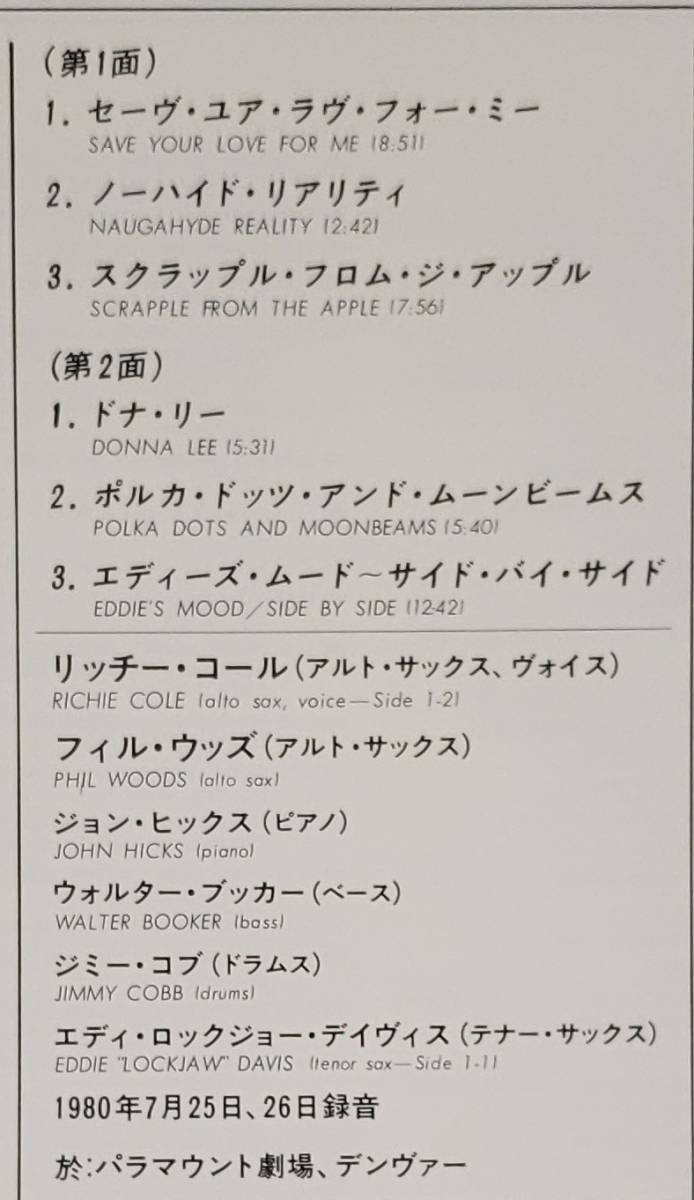 (第1面)
1. セーヴ・ユア・ラヴ・フォー・ミー
SAVE YOUR LOVE FOR ME (8:51)
2. ノーハイド・リアリティ
NAUGAHYDE REALITY (2:42)
3. スクラップル・フロム・ジ・アップル
SCRAPPLE FROM THE APPLE (7:56)
(第2面)
1. ドナ・リー
DONNA LEE (5:31)
2. ポルカ・ドッツ・アンド・ムーンビームス
POLKA DOTS AND MOONBEAMS (5:40)
3. エディーズ・ムード～サイド・バイ・サイド
EDDIE'S MOOD/SIDE BY SIDE (12:42)
リッチー・コール(アルト・サックス、ヴォイス)
RICHIE COLE (alto sax, voice—Side 1-2)
フィル・ウッズ(アルト・サックス)
PHIL WOODS (alto sax)
ジョン・ヒックス(ピアノ)
JOHN HICKS (piano)
ウォルター・ブッカー(ベース)
WALTER BOOKER (bass)
ジミー・コブ(ドラムス)
JIMMY COBB (drums)
エディ・ロックジョー・デイヴィス(テナー・サックス)
EDDIE "LOCKJAW" DAVIS (tenor sax—Side 1-1)
1980年7月25日、26日録音
於:パラマウント劇場、デンヴァー